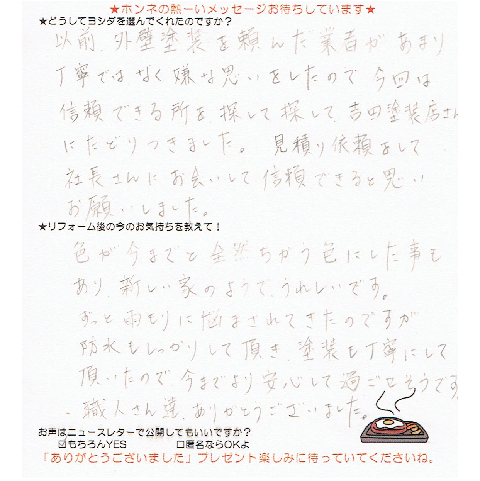 ★ホンネの熱ーいメッセージお待ちしています★
★どうしてヨシダを選んでくれたのですか？
以前、外壁塗装を頼んだ業者があまり
丁寧ではなく嫌な思いをしたので今回は
信頼できる所を、探して探して、吉田塗装店さん
にたどりつきました。 見積り依頼をして
社長さんにお会いして信頼できると思い
お願いしました。
★リフォーム後の今のお気持ちを教えて！
色が今までと全然ちがう色にした事も
あり、新しい家のようで、うれしいです。
ずっと雨もりに悩まされてきたのですが
防水もしっかりして頂き、塗装も丁寧にして
頂いたので、今までより安心して過ごせそうです
、職人さん達、ありがとうございました。
お声はニュースレターで公開してもいいですか？
☑もちろんYES □匿名ならOKよ
「ありがとうございました」プレゼント楽しみに待っていてくださいね。